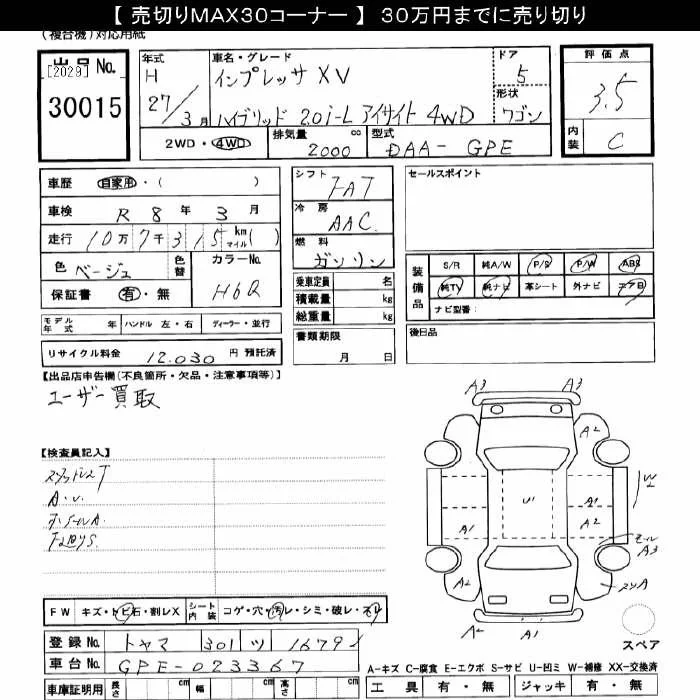 【 売切りMAX30コーナー 】 30万円までに売り切り
(複合機)対応用紙
出品No.
[2029]
30015
年式 H 27/3月
車名・グレード
インプレッサ XV
ハイブリッド 2.0i-L アイサイト 4WD
ドア 5
形状 ワゴン
2WD・4WD
排気量 2000 cc
型式 DAA- GPE
評価点 3.5
内装 C
車歴 自家用・( )
車検 R 8 年 3 月
走行 10万7千315 km マイル( )
色 ベージュ 色替 カラーNo. H6Q
保証書 有・無
シフト FAT
冷房 AAC
燃料 ガソリン
乗車定員 名
積載量 kg
総重量 kg
書類期限 月 日
セールスポイント
装備品
S/R 純A/W P/S P/W ABS
純TV 純ナビ 革シート 外ナビ エアB
ナビ型番:
後日品
モデル年式 年 ハンドル 左・右 ディーラー・並行
リサイクル料金 12,030 円 預託済
【出品店申告欄(不良箇所・欠品・注意事項等)】
ユーザー買取
【検査員記入】
A.U.
A3 A3
A2
U1
A1
A2
A1
W2
A3
A2
A1
スペア
FW キズ・トビ石・割レX シート内装 コゲ・穴・汚レ・シミ・破レ・スレ
登録No. トヤマ 301 ツ 1679
車台No. GPE-023367
車庫証明用 長さ cm 幅 cm 高さ cm
A-キズ C-腐食 E-エクボ S-サビ U-凹ミ W-補修 XX-交換済
工具 有・無 ジャッキ 有・無